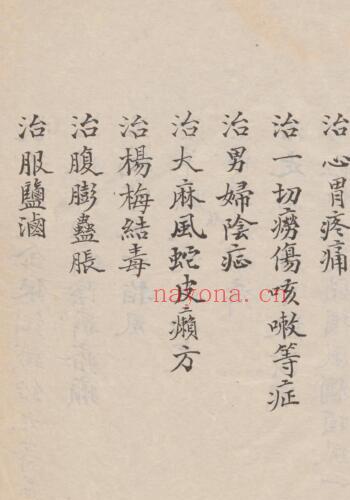 治心胃疼痛
治一切癆傷咳嗽等症
治男婦陰症
治大麻風蛇皮癩方
治楊梅結毒
治腹膨蠱脹
治服鹽滷
nayona.cn